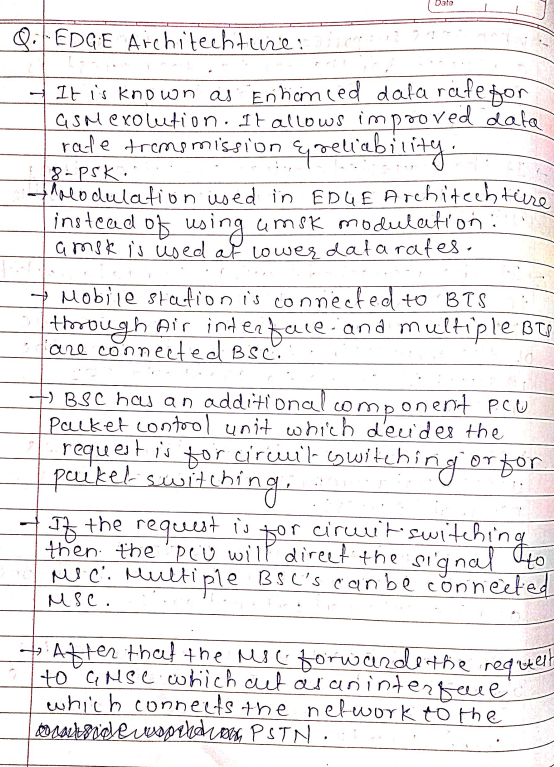 Date
Q. EDGE Architechture:
→ It is known as Enhanced data rate for
GSM evolution. It allows improved data
rate transmission & reliability.
8-PSK.
→ ^Modulation used in EDGE Architechture
instead of using GMSK modulation.
GMSK is used at lower data rates.
→ Mobile station is connected to BTS
through Air interface. and multiple BTS
are connected BSC.
→ BSC has an additional component PCU
Packet control unit which decides the
request is for circuit switching or for
packet switching.
→ If the request is for circuit switching
then the PCU will direct the signal to
MSC. Multiple BSC's can be connected
MSC.
→ After that the MSC forwards the request
to GMSC which act as an interface
which connects the network to the
PSTN.